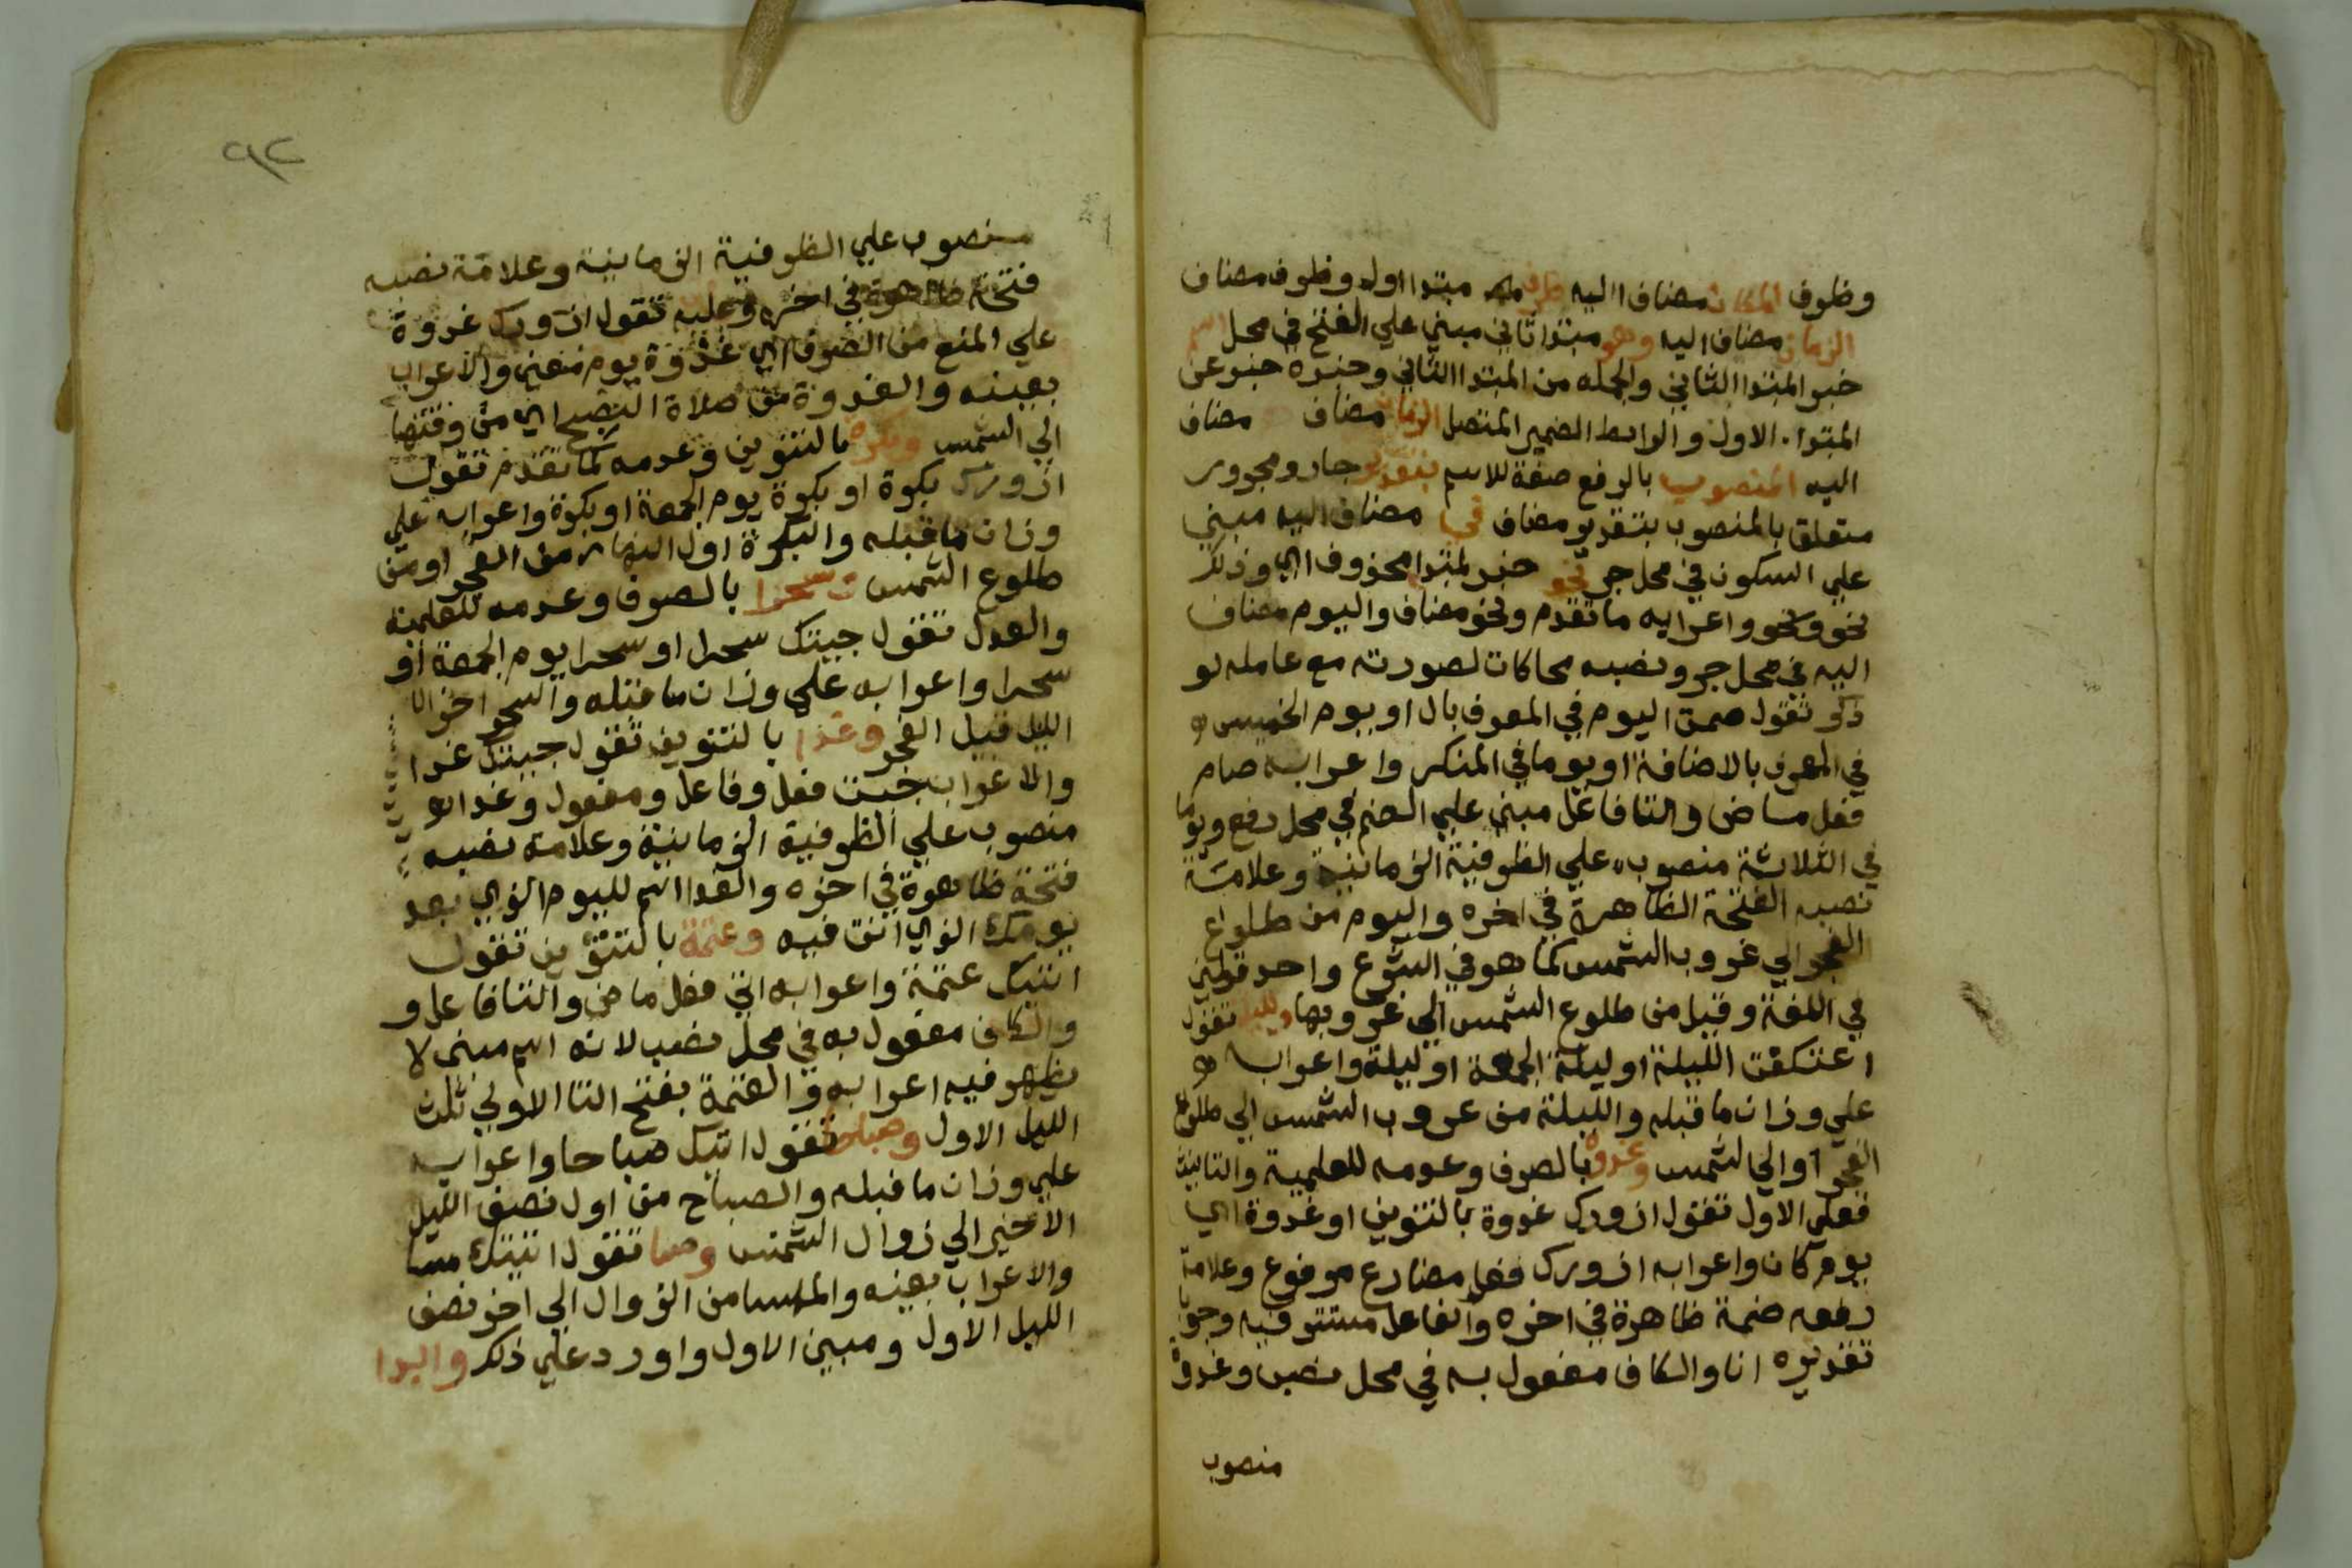 وظرف المكان مضاف اليه ظرف مبتدا اول وظرف مضاف
الزمان مضاف اليه وهو مبتدا ثاني مبني علي الفتح في محل اسم
خبر المبتدا الثاني والجمله من المبتدا الثاني وخبره خبر عن
المبتدا الاول والرابط الضمير المتصل الزمان مضاف مضاف
اليه المنصوب بالرفع صفة للاسم بتقدير جار ومجرور
متعلق بالمنصوب بتقدير مضاف في مضاف اليه مبني
علي السكون في محل جر نحو خبر لمبتدا محذوف اي وذلك
نحو ونحو واعرابه ما تقدم ونحو مضاف واليوم مضاف
اليه في محل جر ونصبه محاكات لصورته مع عامله لو
ذكر تقول صمت اليوم في المعرف بال او يوم الخميس
في المعرف بالاضافة او يوما في المنكر واعرابه صام
فعل ماض والتا فاعل مبني علي الضم في محل رفع ويوما
في الثلاثة منصوب علي الظرفية الزمانية وعلامة
نصبه الفتحة الظاهرة في اخره واليوم من طلوع
الفجر الي غروب الشمس كما هو في الشرع واحد قولين
في اللغة وقيل من طلوع الشمس الي غروبها وليلة تقول
اعتكفت الليلة او ليلة الجمعة او ليلة واعرابه
علي وزان ما قبله والليلة من غروب الشمس الي طلوع
الفجر او الي الشمس وغدوة بالصرف وعدمه للعلمية والتانيث
فعلي الاول تقول ازورك غدوة بالتنوين او غدوة اي
يوم كان واعرابه ازورك فعل مضارع مرفوع وعلامة
رفعه ضمة ظاهرة في اخره والفاعل مستتر فيه وجوبا
تقديره انا والكاف مفعول به في محل نصب وغدوة
منصوب
٩٢
منصوب علي الظرفية الزمانية وعلامة نصبه
فتحة ظاهرة في اخره وعليه تقول ازورك غدوة
علي المنع من الصرف اي غدوة يوم معين والاعراب
بعينه والغدوة من صلاة الصبح اي من وقتها
الي الشمس وبكرة بالتنوين وعدمه كما تقدم تقول
ازورك بكرة او بكرة يوم الجمعة او بكرة واعرابه علي
وزان ما قبله والبكرة اول النهار من الفجر او من
طلوع الشمس وسحرا بالصرف وعدمه للعلمية
والعدل تقول جيتك سحرا او سحرا يوم الجمعة او
سحرا واعرابه علي وزان ما قبله والسحر اخر
الليل قبيل الفجر وغدا بالتنوين تقول جيتك غدا
والاعراب جيت فعل وفاعل ومفعول وغدا
منصوب علي الظرفية الزمانية وعلامة نصبه
فتحة ظاهرة في اخره والغدا اسم لليوم الذي بعد
يومك الذي انت فيه وعتمة بالتنوين تقول
اتيتك عتمة واعرابه اتي فعل ماض والتا فاعل و
والكاف مفعول به في محل نصب لانه اسم مبني لا
يظهر فيه اعرابه والعتمة بفتح التا الاولي ثلث
الليل الاول وصباحا تقول اتيتك صباحا واعرابه
علي وزان ما قبله والصباح من اول نصف الليل
الاخير الي زوال الشمس ومسا تقول اتيتك مسا
والاعراب بعينه والمسا من الزوال الي اخر نصف
الليل الاول ومبين الاول واورد علي ذلك وابدا